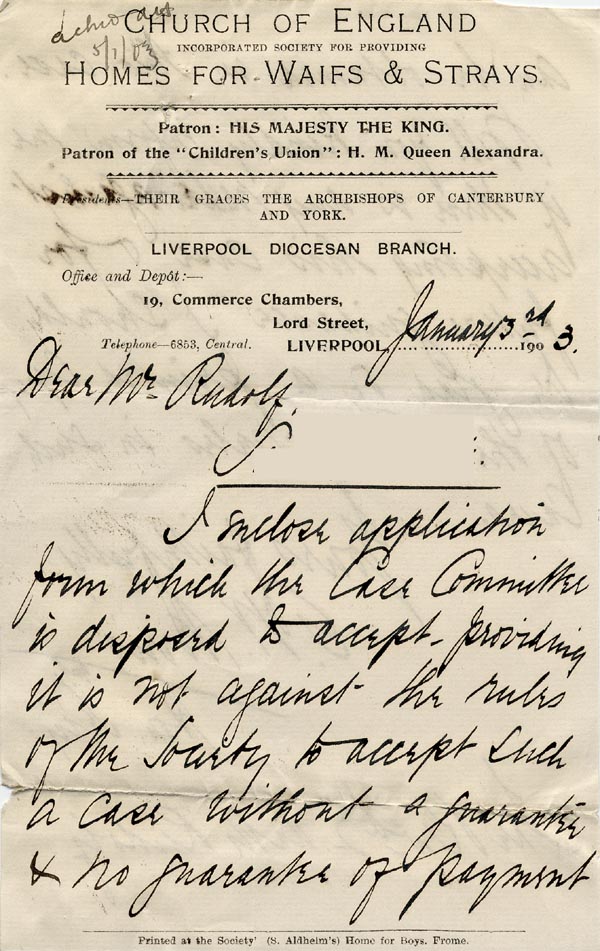 5/1/03
CHURCH OF ENGLAND
INCORPORATED SOCIETY FOR PROVIDING
HOMES FOR WAIFS & STRAYS.
Patron: HIS MAJESTY THE KING.
Patron of the "Children's Union": H. M. Queen Alexandra.
Presidents—THEIR GRACES THE ARCHBISHOPS OF CANTERBURY
AND YORK.
LIVERPOOL DIOCESAN BRANCH.
Office and Depôt:—
19, Commerce Chambers,
Lord Street,
Telephone—6853, Central. LIVERPOOL, January 3rd 1903.
Dear Mr. Rudolf,
I enclose application
form which the Case Committee
is disposed to accept - providing
it is not against the rules
of the Society to accept such
a case without a guarantee
& no guarantee of payment
Printed at the Society' (S. Aldheim's) Home for Boys. Frome.